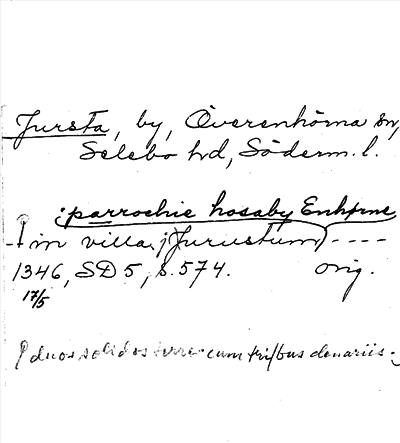 Jursta, by, Överenhörna sn,
Selebo hd, Söderm. l.
; parrochie hosaby Enhørne
- in villa, Jurustum ) ----
1346, SD 5, s. 574. orig.
17/5
duos solidos terre cum tribus denariis.